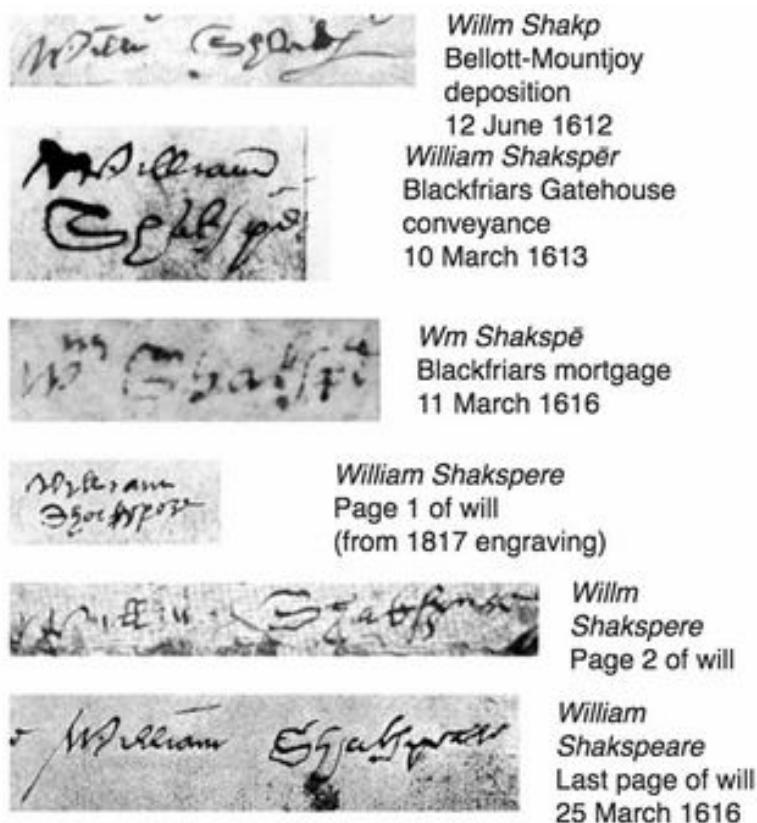 Willm Shakp
Bellott-Mountjoy
deposition
12 June 1612
William
William Shakspēr
Blackfriars Gatehouse
conveyance
10 March 1613
Wm Shakspē
Blackfriars mortgage
11 March 1616
William Shakspere
Page 1 of will
(from 1817 engraving)
Willm
Shakspere
Page 2 of will
William
William
Shakspeare
Last page of will
25 March 1616